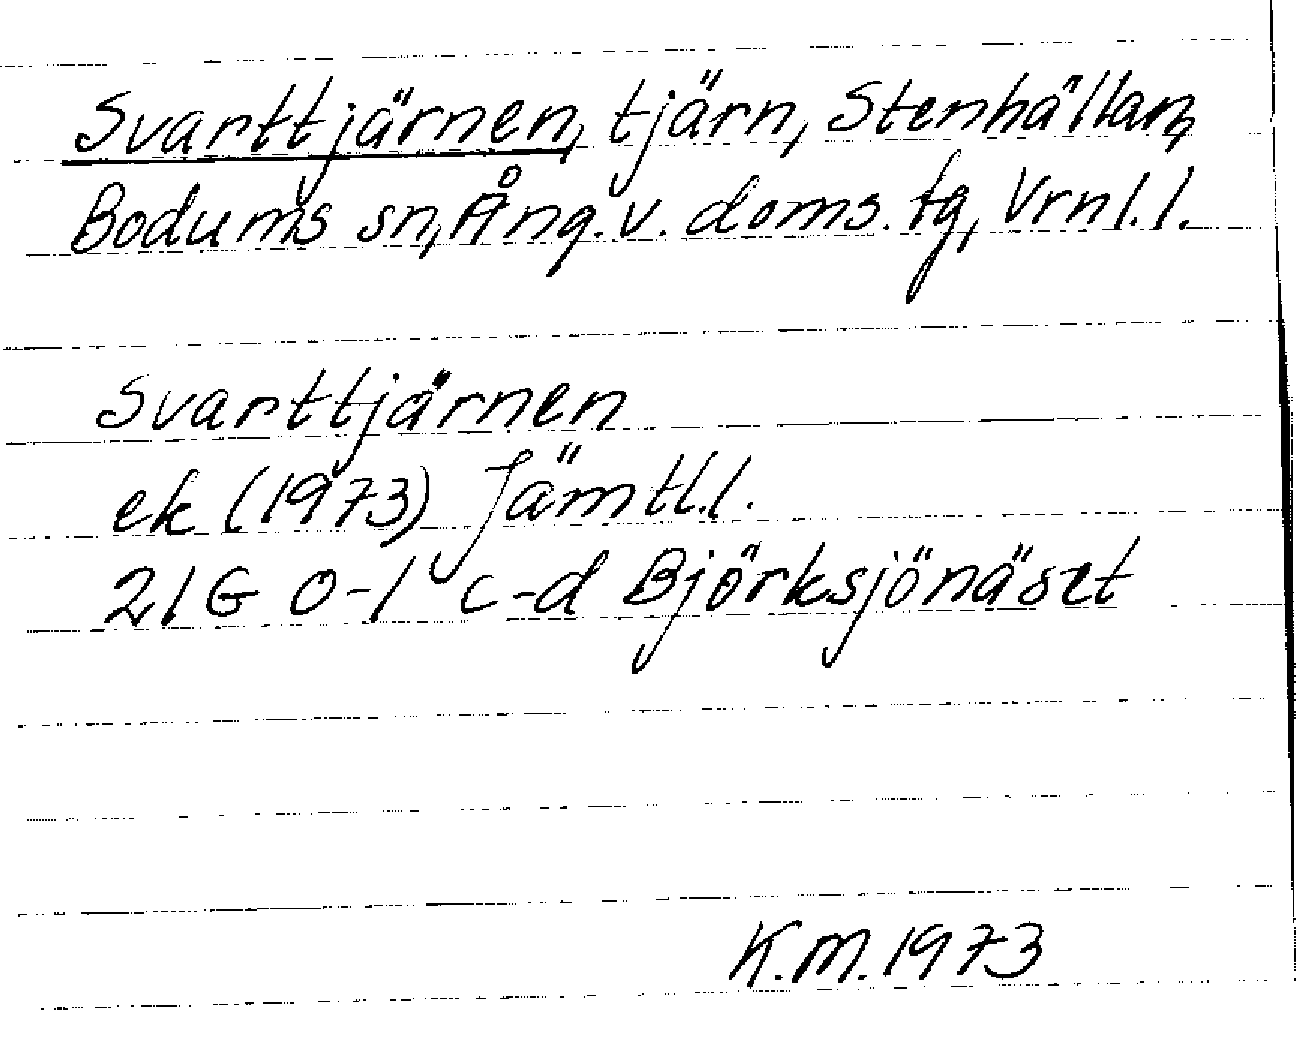 Svarttjärnen, tjärn, Stenhällan,
Bodums sn, Ång. v. doms. tg, Vrnl. l.
Svarttjärnen
ek (1973) Jämtl. l.
21G 0-1 c-d Björksjönäset
K.M. 1973